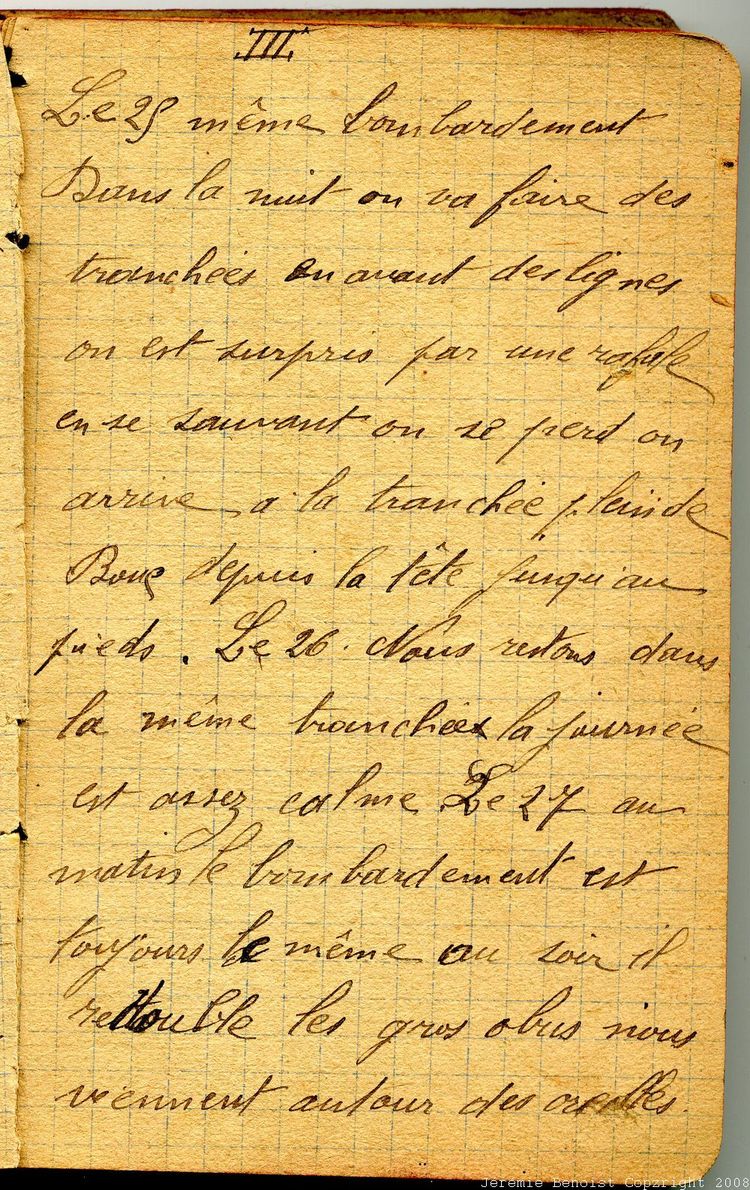 III
Le 25 même bombardement
Dans la nuit on va faire des
tranchées en avant des lignes
on est surpris par une rafale
en se sauvant on se perd on
arrive a la tranchée plein de
Boue depuis la tête jusqu'au
pieds. Le 26. Nous restons dans
la même tranchée la journée
est assez calme. Le 27 au
matin le bombardement est
toujours le même au soir il
redouble les gros obus nous
viennent autour des oreilles.
Jeremie Benoist Copzright 2008